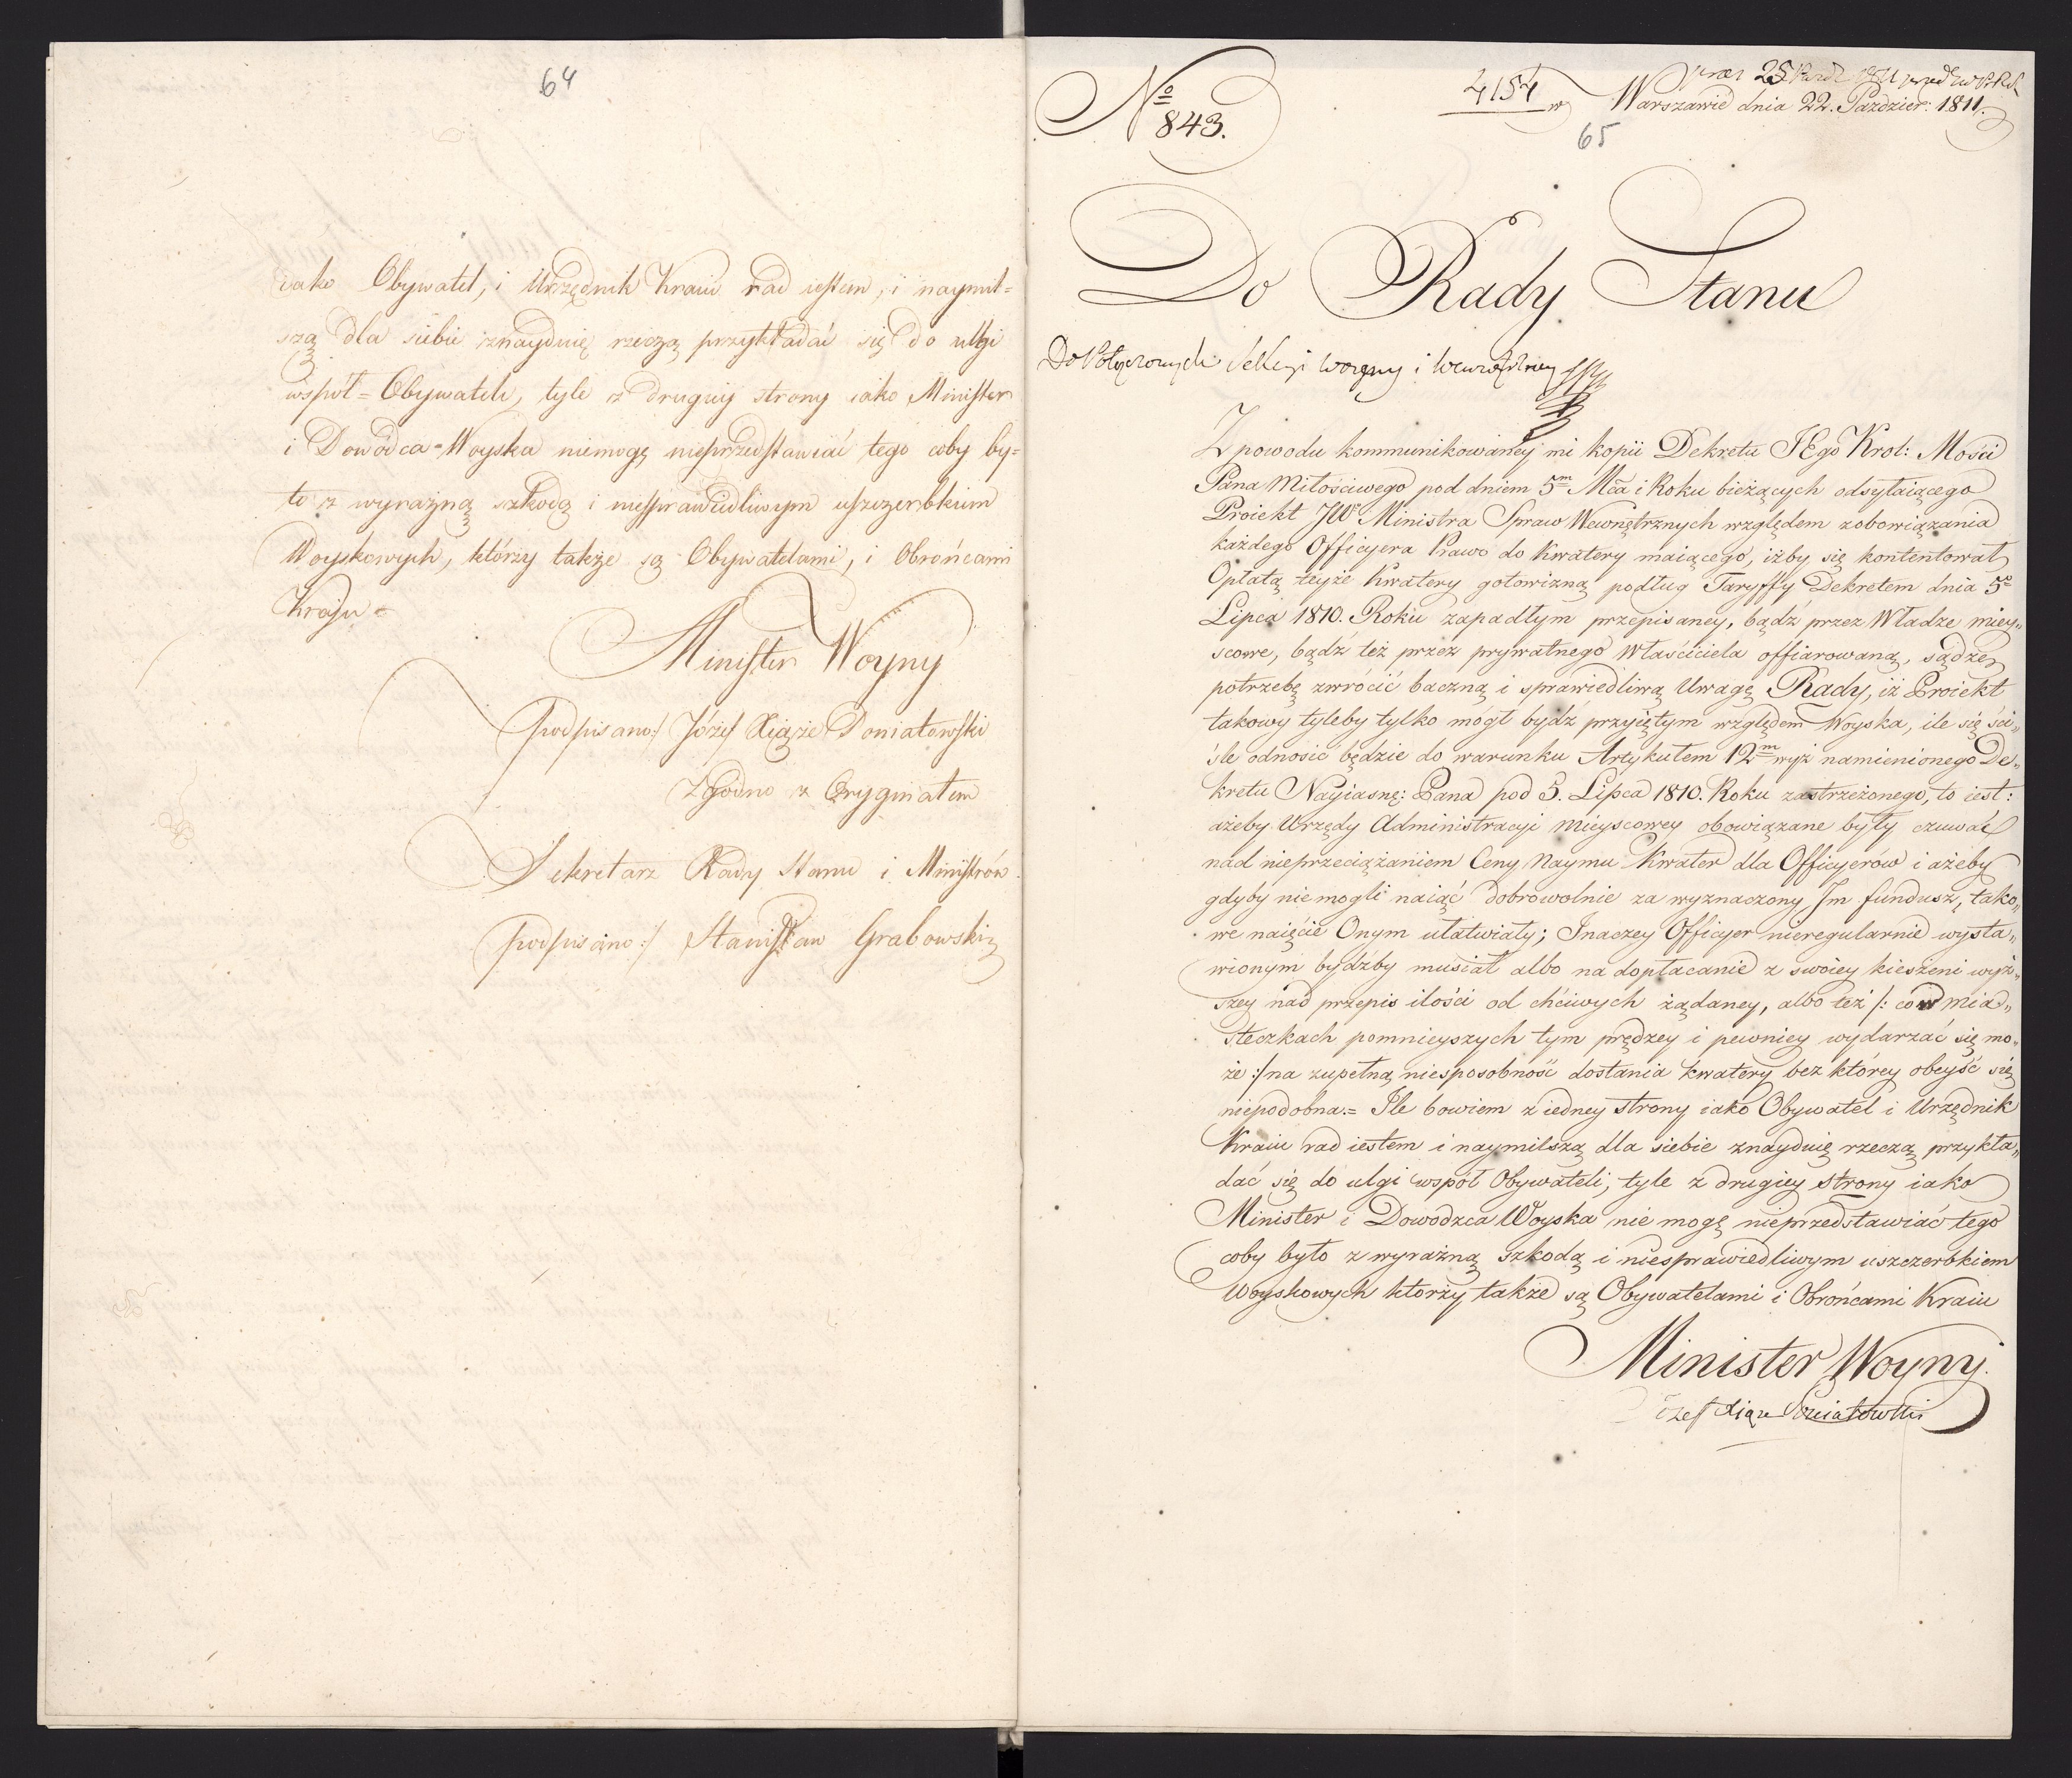 64
iako Obywatel, i Urzędnik Kraiu rad iestem, i naymil=
szą dla siebie znayduię rzeczą przykładać się do ulgi
współ=Obywateli, tyle z drugiey strony iako Minister
i Dowódca=Woyska niemogę nieprzedstawiać tego coby by=
ło z wyraźną szkodą i niesprawiedliwym uszczerbkiem
Woyskowych, którzy także są Obywatelami, i Obrońcami
Kraju =
Minister Woyny
podpisano:/ Józef Xiąże Poniatowski
Zgodno z Oryginałem
Sekretarz Rady Stanu i Ministrów
podpisano:/ Stanisław Grabowski
No 843.
4154
w Warszawie dnia 22. Pazdzier: 1811.
65
Do Rady Stanu
Do Połączonych Sekcyi Woyny i Wewnętrzney
Z powodu kommunikowaney mi kopii Dekretu JEgo Krol: Mości
Pana Miłościwego pod dniem 5m Mca i Roku bieżących odsyłaiącego
Proiekt JW Ministra Spraw Wewnętrznych względem zobowiązania
każdego Officyera Prawo do Kwatery maiącego, iżby się kontentował
Opłatą teyże Kwatery gotowizną podług Taryffy Dekretem dnia 5o
Lipca 1810. Roku zapadłym przepisaney, bądź przez Władze miey„
scowe, bądź też przez prywatnego Właściciela offiarowaną, sądzę
potrzebę zwrócić baczną i sprawiedliwą Uwagę Rady, iż Proiekt
takowy tyleby tylko mógł bydź przyiętym względem Woyska, ile się ści„
śle odnosić będzie do warunku Artykułem 12m wyż namienionego De„
kretu Nayiasne: Pana pod 5. Lipca 1810. Roku zastrzeżonego, to iest:
ażeby Urzędy Administracyi mieyscowey obowiązane były czuwać
nad nieprzeciążaniem Ceny Naymu Kwater dla Officyerów i ażeby
gdyby niemogli naiąć dobrowolnie za wyznaczony Im fundusz, tako„
we naięcie Onym ułatwiały; Inaczey Officyer nieregularnie wysta„
wionym bydźby musiał albo na dopłacanie z swoiey kieszeni wyż„
szey nad przepis ilości od chciwych żądaney, albo też /: co w mia„
steczkach pomnieyszych tym prędzey i pewniey wydarzać się mo„
że :/ na zupełną niesposobność dostania kwatery bez którey obeyść się
niepodobna.= Ile bowiem z iedney strony iako Obywatel i Urzędnik
Kraiu rad iestem i naymilszą dla siebie znayduię rzeczą przykła„
dać się do ulgi współ Obywateli, tyle z drugiey strony iako
Minister i Dowodzca Woyska nie mogę nieprzedstawiać tego
coby było z wyraźną szkodą i niesprawiedliwym uszczerbkiem
Woyskowych którzy także są Obywatelami i Obrońcami Kraiu
Minister Woyny.
Józef Xiąze Poniatowski